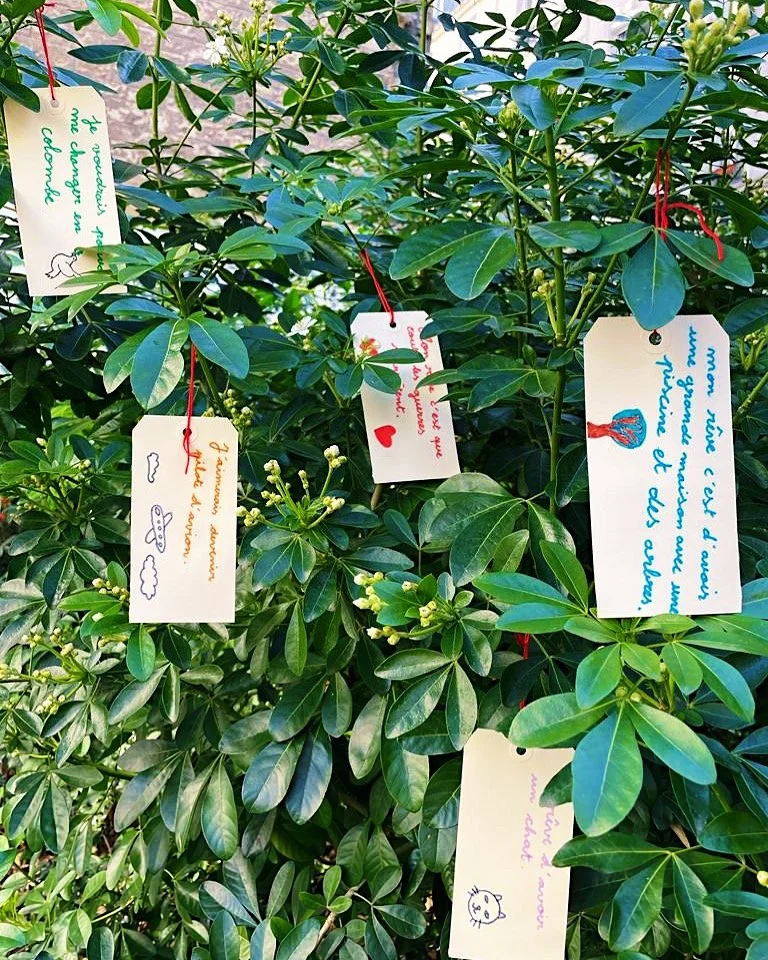 Je voudrais
me changer en
colombe
J'aimerais devenir
pilote d'avion.
Mon rêve c'est que
toutes les guerres
mon rêve c'est d'avoir
une grande maison avec une
piscine et des arbres.
rêve d'avoir
un chat.